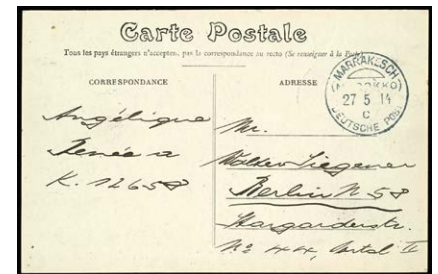 Carte Postale
Tous les pays étrangers n'acceptent pas la correspondance au recto (Se renseigner à la Poste)
CORRESPONDANCE
ADRESSE
MARRAKESCH
(MAROKKO)
27 5 14
C
DEUTSCHE POST
Angélique
Renée a
K. 12658
Mr.
Walter Siegener
Berlin N 58
Stargarderstr.
No 44, Portal II